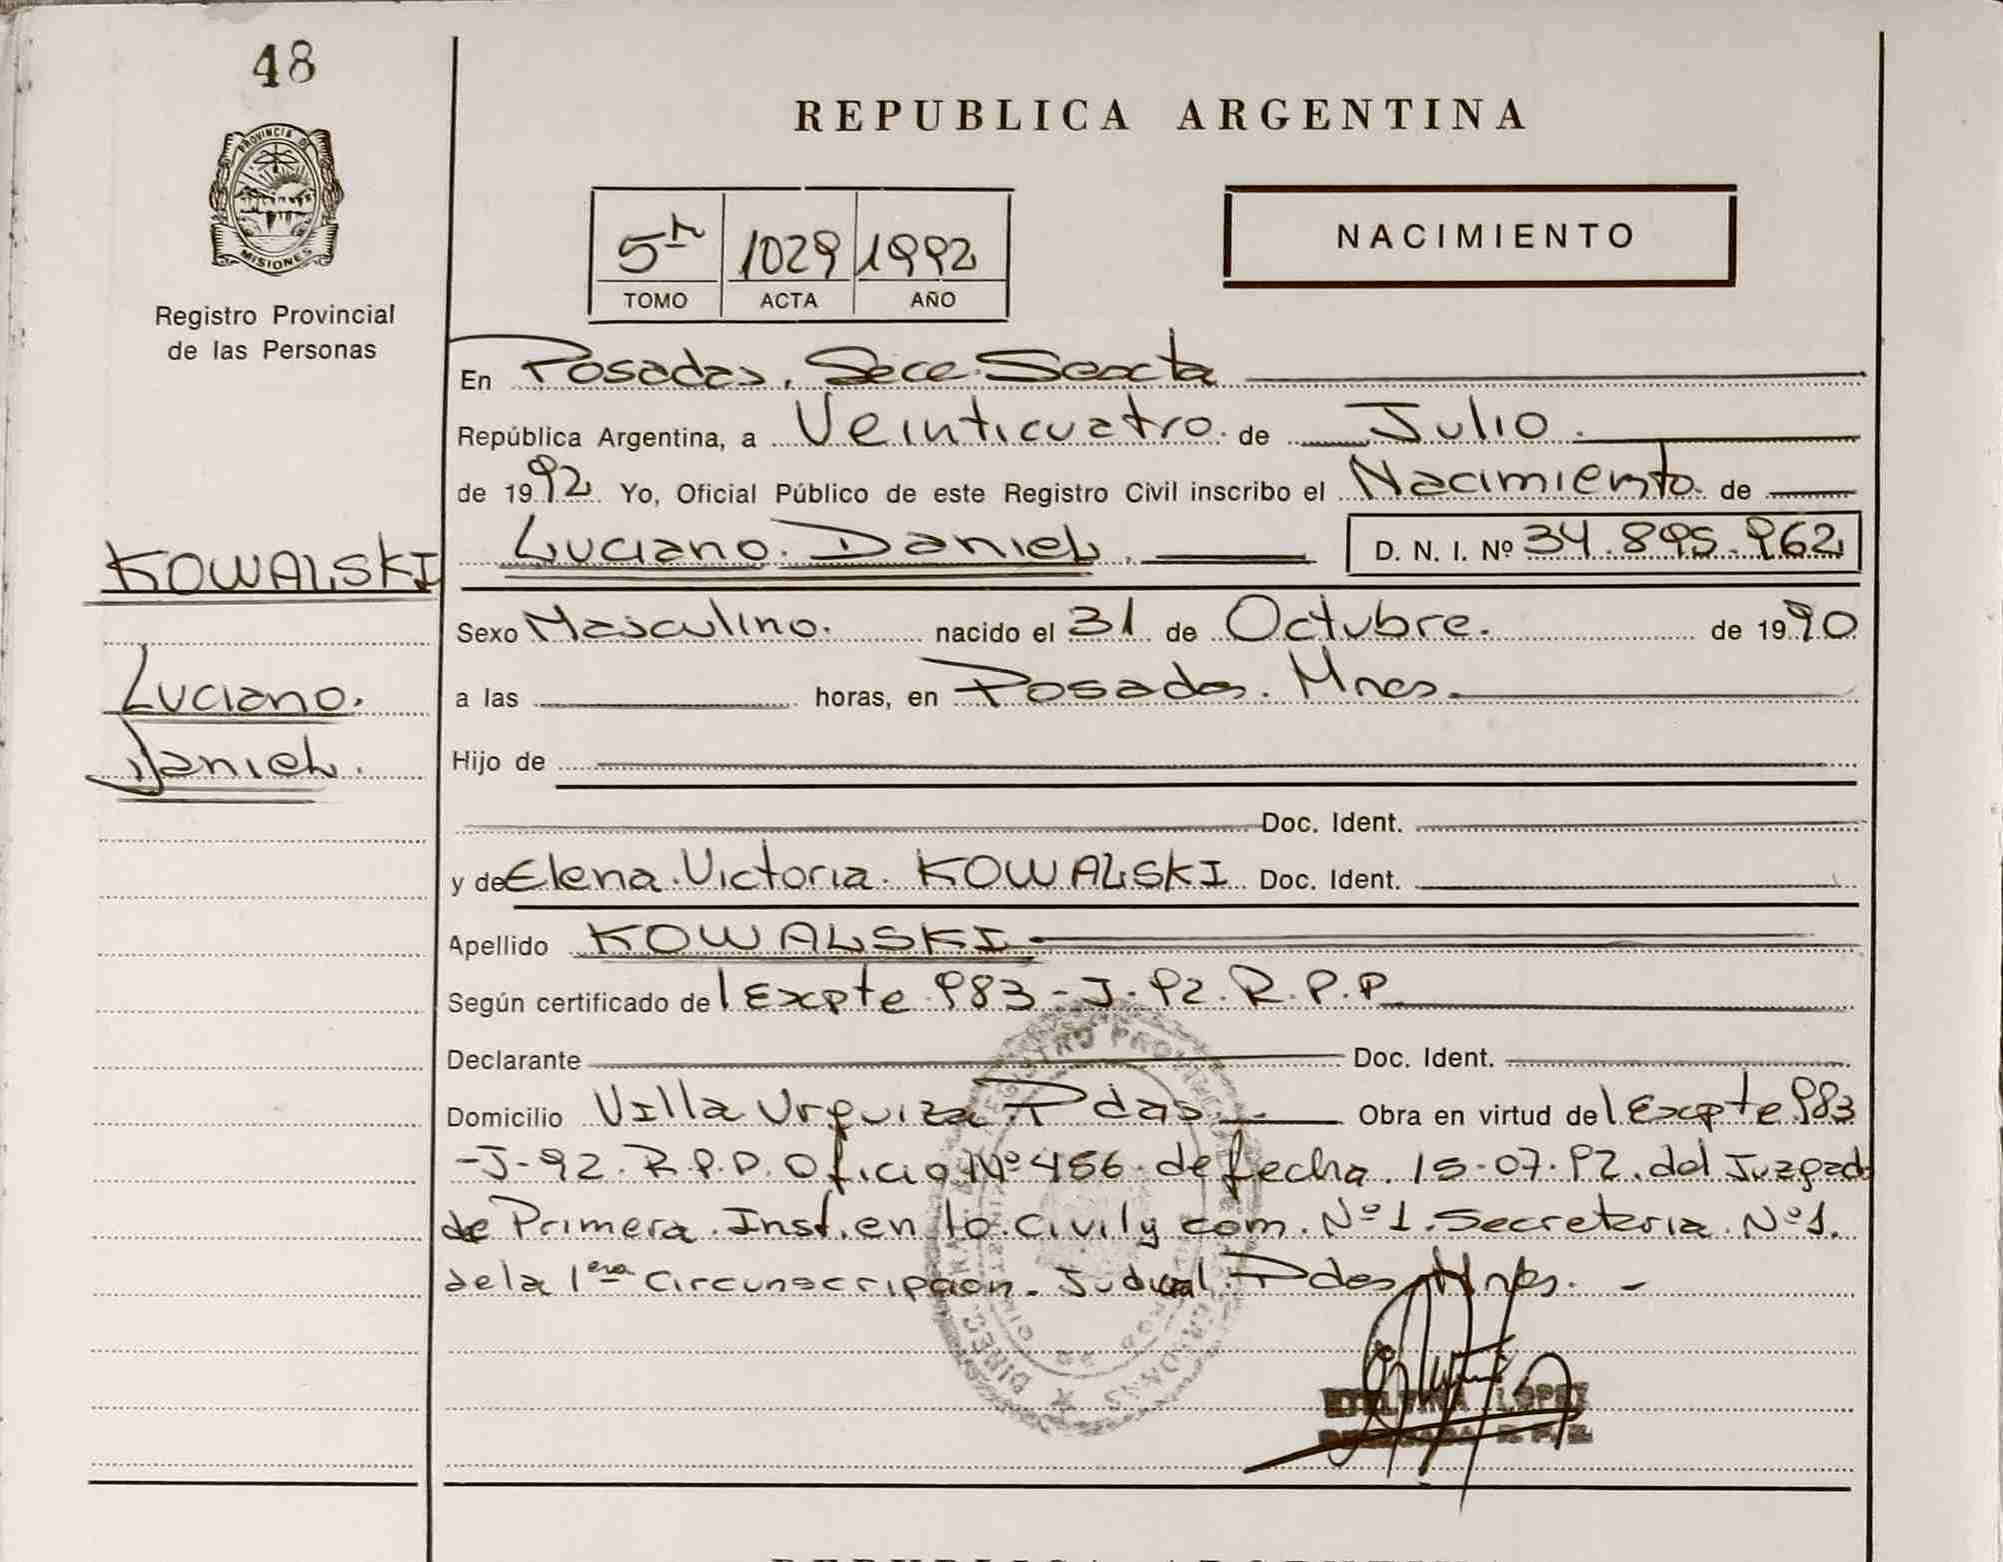 48
REPUBLICA ARGENTINA
PROVINCIA DE
MISIONES
Registro Provincial
de las Personas
NACIMIENTO
5to 1029 1992
TOMO ACTA AÑO
En Posadas, Secc. Sexta
República Argentina, a Veinticuatro de Julio.
de 1992 Yo, Oficial Público de este Registro Civil inscribo el Nacimiento de
KOWALSKI
Luciano.
Daniel.
Luciano. Daniel. D. N. I. Nº 34.895.962
Sexo Masculino. nacido el 31 de Octubre. de 1990
a las horas, en Posadas. Mnes.
Hijo de
Doc. Ident.
y de Elena. Victoria. KOWALSKI Doc. Ident.
Apellido KOWALSKI
Según certificado de l Expte 983-J-92.R.P.P
Declarante Doc. Ident.
Domicilio Villa Urquiza Pdas. Obra en virtud de l Expte 983
-J-92.R.P.P. Oficio Nº 456 de fecha. 15-07-92. del Juzgado
de Primera. Inst. en lo Civil y com. Nº 1. Secretaria. Nº 1.
de la 1era Circunscripcion. Judicial. Pdas, Mnes. -
ETELVINA LOPEZ
REPUBLICA ARGENTINA